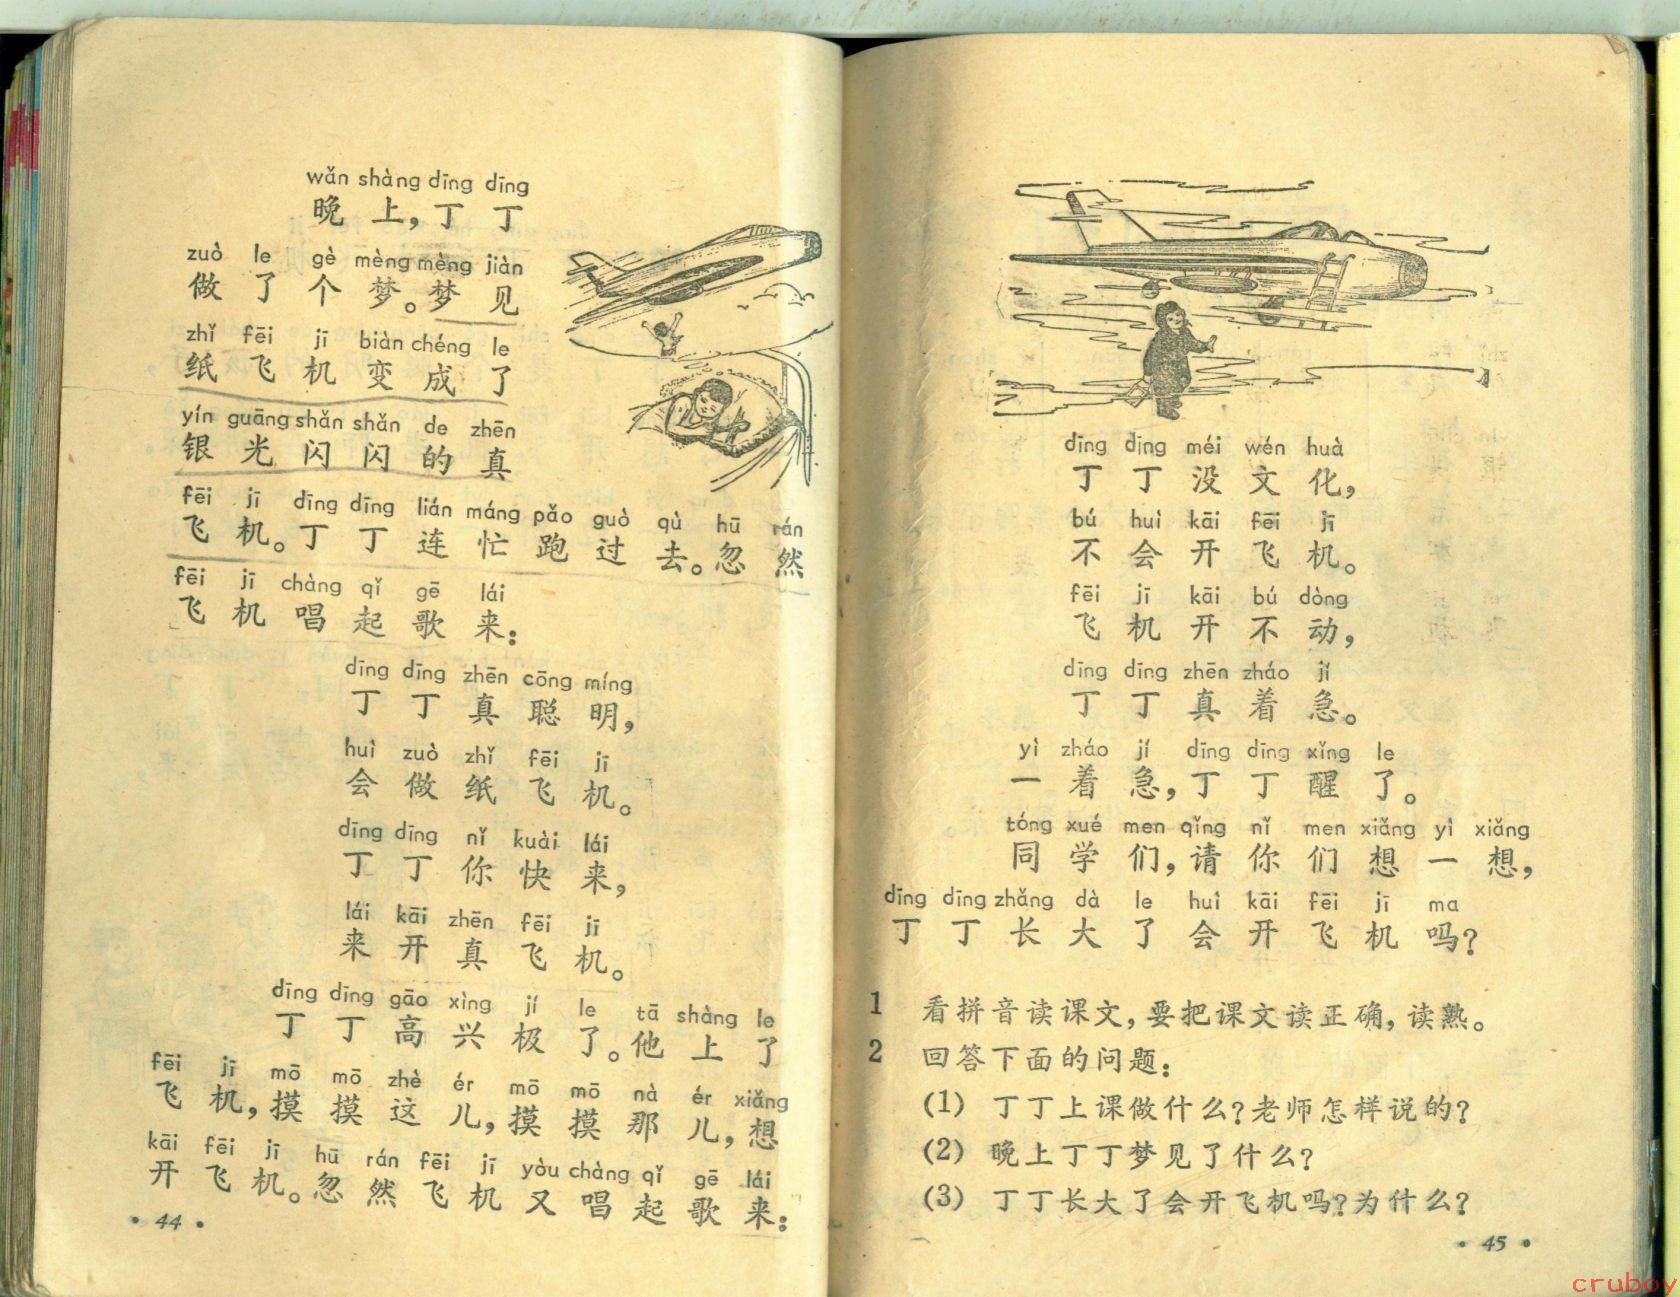 wǎn shàng dīng dīng
晚上，丁丁
zuò le gè mèng mèng jiàn
做了个梦。梦见
zhǐ fēi jī biàn chéng le
纸飞机变成了
yín guāng shǎn shǎn de zhēn
银光闪闪的真
fēi jī dīng dīng lián máng pǎo guò qù hū rán
飞机。丁丁连忙跑过去。忽然
fēi jī chàng qǐ gē lái
飞机唱起歌来：
dīng dīng zhēn cōng míng
丁丁真聪明，
huì zuò zhǐ fēi jī
会做纸飞机。
dīng dīng nǐ kuài lái
丁丁你快来，
lái kāi zhēn fēi jī
来开真飞机。
dīng dīng gāo xìng jí le tā shàng le
丁丁高兴极了。他上了
fēi jī mō mō zhè ér mō mō nà ér xiǎng
飞机，摸摸这儿，摸摸那儿，想
kāi fēi jī hū rán fēi jī yòu chàng qǐ gē lái
开飞机。忽然飞机又唱起歌来：
• 44 •
dīng dīng méi wén huà
丁丁没文化，
bú huì kāi fēi jī
不会开飞机。
fēi jī kāi bú dòng
飞机开不动，
dīng dīng zhēn zháo jí
丁丁真着急。
yì zháo jí dīng dīng xǐng le
一着急，丁丁醒了。
tóng xué men qǐng nǐ men xiǎng yì xiǎng
同学们，请你们想一想，
dīng dīng zhǎng dà le huì kāi fēi jī ma
丁丁长大了会开飞机吗？
1 看拼音读课文，要把课文读正确，读熟。
2 回答下面的问题：
(1) 丁丁上课做什么？老师怎样说的？
(2) 晚上丁丁梦见了什么？
(3) 丁丁长大了会开飞机吗？为什么？
• 45 •
cruboy